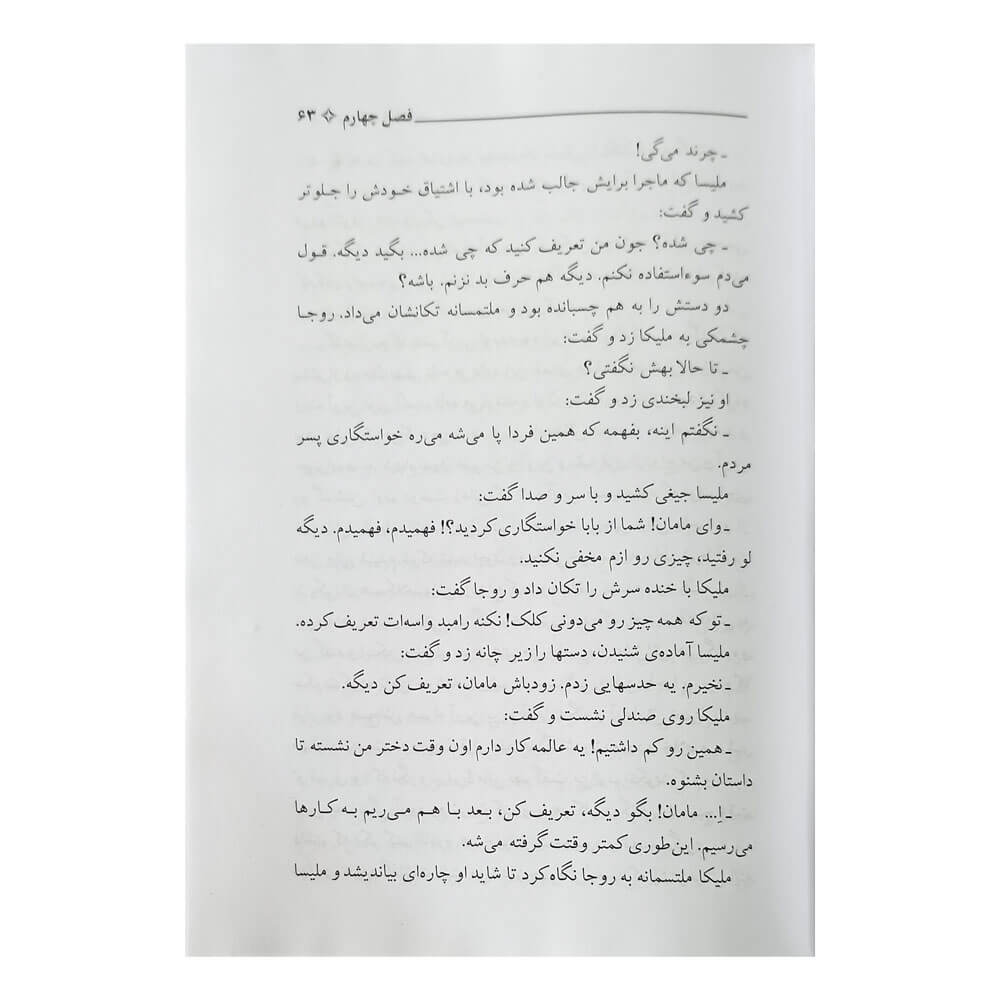 فصل چهارم ✧ ۶۳
ـ چرند می‌گی!
ملیسا که ماجرا برایش جالب شده بود، با اشتیاق خودش را جلوتر
کشید و گفت:
ـ چی شده؟ جون من تعریف کنید که چی شده... بگید دیگه. قول
می‌دم سوءاستفاده نکنم. دیگه هم حرف بد نزنم. باشه؟
دو دستش را به هم چسبانده بود و ملتمسانه تکانشان می‌داد. روجا
چشمکی به ملیکا زد و گفت:
ـ تا حالا بهش نگفتی؟
او نیز لبخندی زد و گفت:
ـ نگفتم اینه، بفهمه که همین فردا پا می‌شه می‌ره خواستگاری پسر
مردم.
ملیسا جیغی کشید و با سر و صدا گفت:
ـ وای مامان! شما از بابا خواستگاری کردید؟! فهمیدم، فهمیدم. دیگه
لو رفتید، چیزی رو ازم مخفی نکنید.
ملیکا با خنده سرش را تکان داد و روجا گفت:
ـ تو که همه چیز رو می‌دونی کلک! نکنه رامبد واسه‌ات تعریف کرده.
ملیسا آماده‌ی شنیدن، دستها را زیر چانه زد و گفت:
ـ نخیرم. یه حدسهایی زدم. زودباش مامان، تعریف کن دیگه.
ملیکا روی صندلی نشست و گفت:
ـ همین رو کم داشتیم! یه عالمه کار دارم اون وقت دختر من نشسته تا
داستان بشنوه.
ـ اِ... مامان! بگو دیگه، تعریف کن، بعد با هم می‌ریم به کارها
می‌رسیم. این‌طوری کمتر وقتت گرفته می‌شه.
ملیکا ملتسمانه به روجا نگاه کرد تا شاید او چاره‌ای بیاندیشد و ملیسا